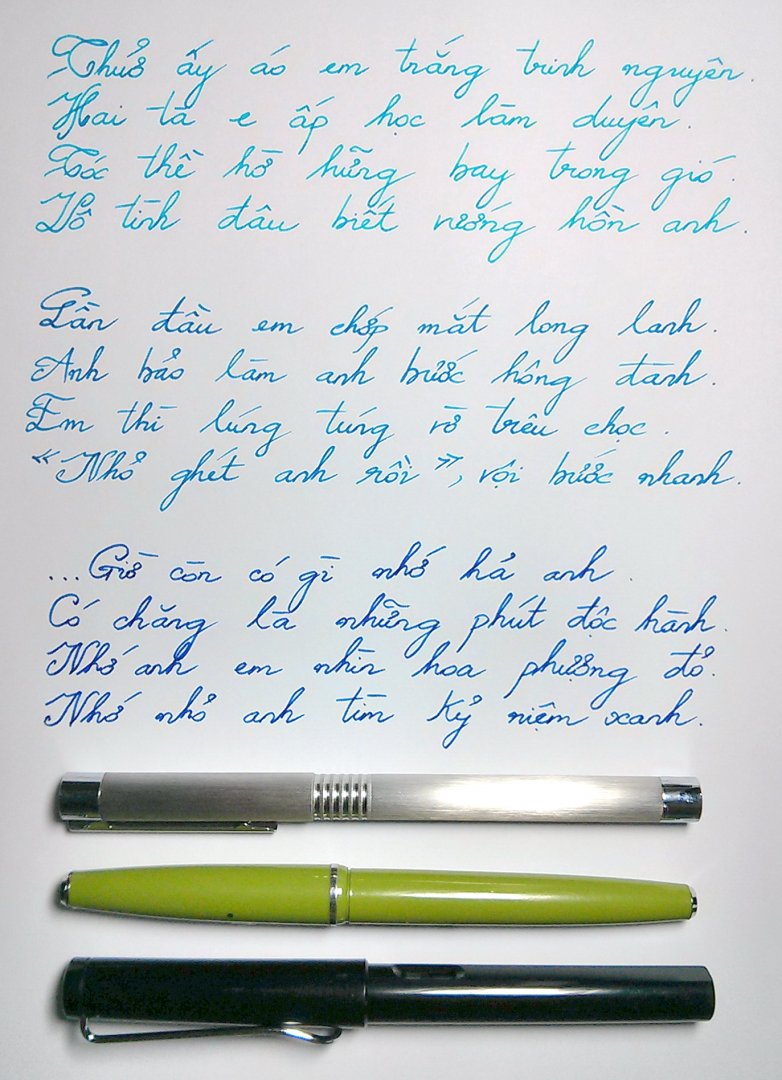 Thuở ấy áo em trắng trinh nguyên.
Hai tà e ấp học làm duyên.
Tóc thề hờ hững bay trong gió.
Vô tình đâu biết vướng hồn anh.
Lần đầu em chớp mắt long lanh.
Anh bảo làm anh bước hông đành.
Em thì lúng túng vờ trêu chọc.
«Nhỏ ghét anh rồi», vội bước nhanh.
...Giờ còn có gì nhớ hả anh.
Có chăng là những phút độc hành.
Nhớ anh em nhìn hoa phượng đỏ.
Nhớ nhỏ anh tìm kỷ niệm xanh.